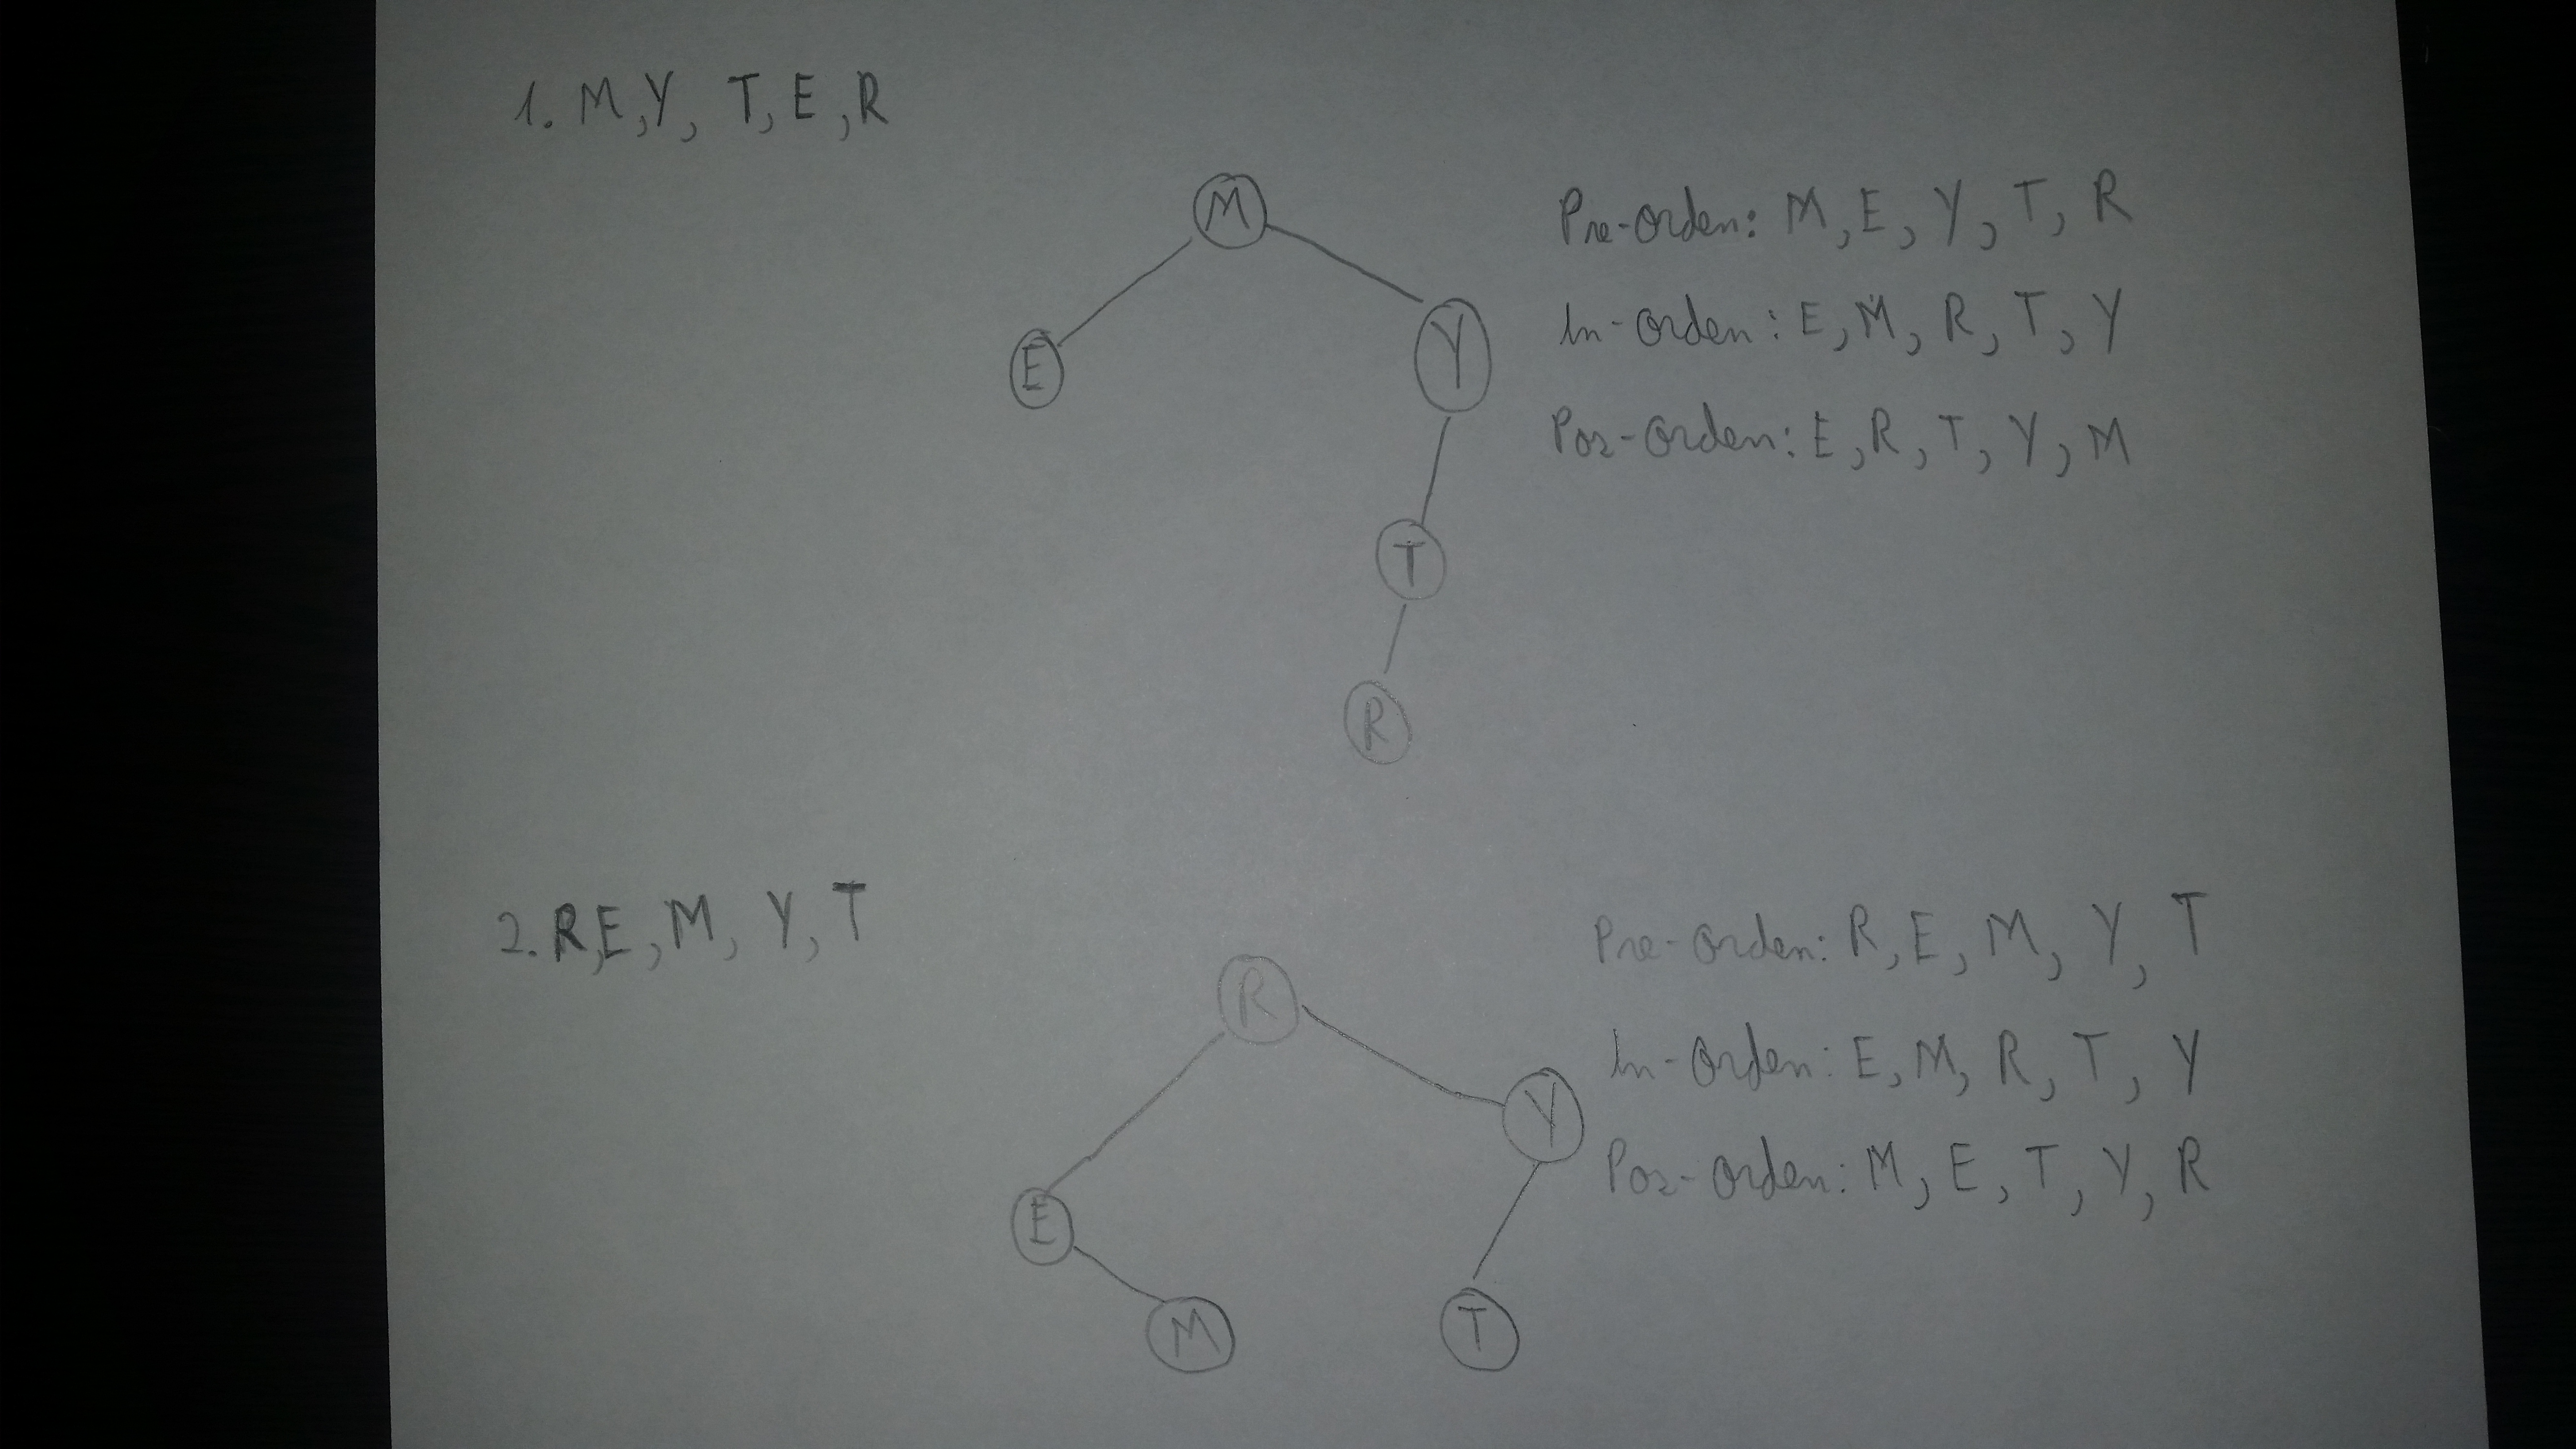 1. M, Y, T, E, R
M
E
Y
T
R
Pre-Orden: M, E, Y, T, R
In-Orden: E, M, R, T, Y
Pos-Orden: E, R, T, Y, M
2. R, E, M, Y, T
R
Y
E
M
T
Pre-Orden: R, E, M, Y, T
In-Orden: E, M, R, T, Y
Pos-Orden: M, E, T, Y, R